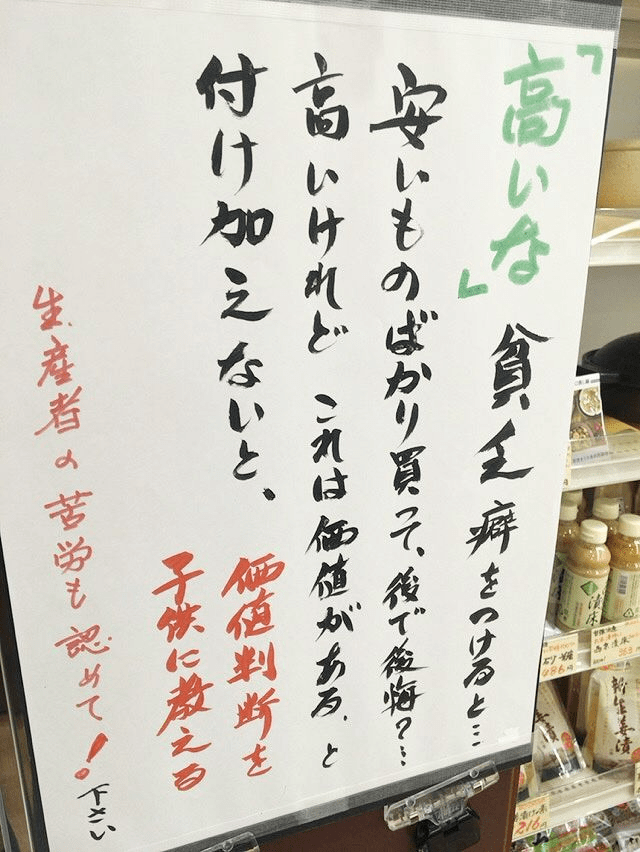 「高いな」貧乏癖をつけると…
安いものばかり買って、後で後悔?…
高いけれど これは価値がある、と
付け加えないと、
価値判断を
子供に教える
生産者の苦労も認めて!下さい
漬床
486円
363
216円